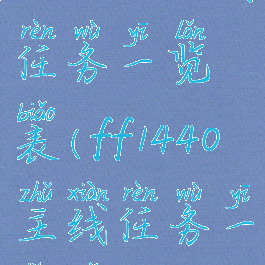 rèn wù yī lǎn
任务一览
biǎo
表(ff1440
zhǔ xiàn rèn wù yī
主线任务一